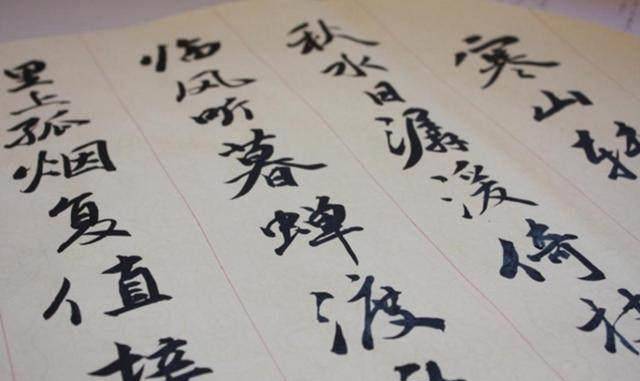 寒山转
秋水日潺湲倚
临风听暮蝉渡
里上孤烟复值接